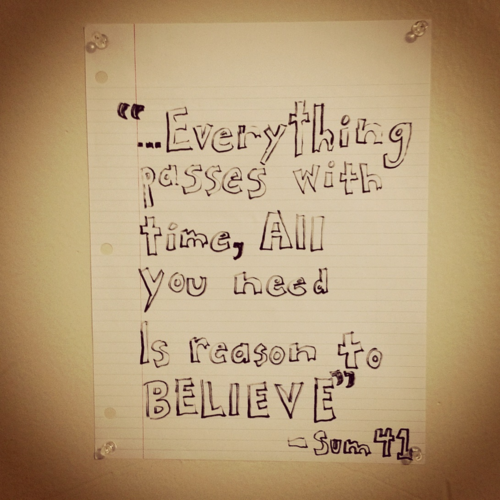 “...Everything
passes with
time, All
you need
Is reason to
BELIEVE”
- Sum 41